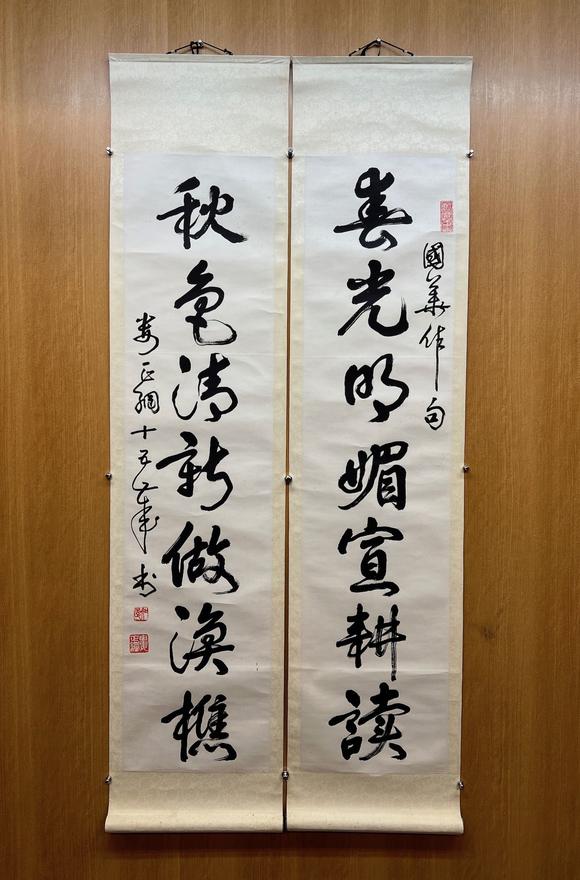 國華作句
春光明媚宜耕讀
秋色清新做漁樵
娄正綱十五歲书